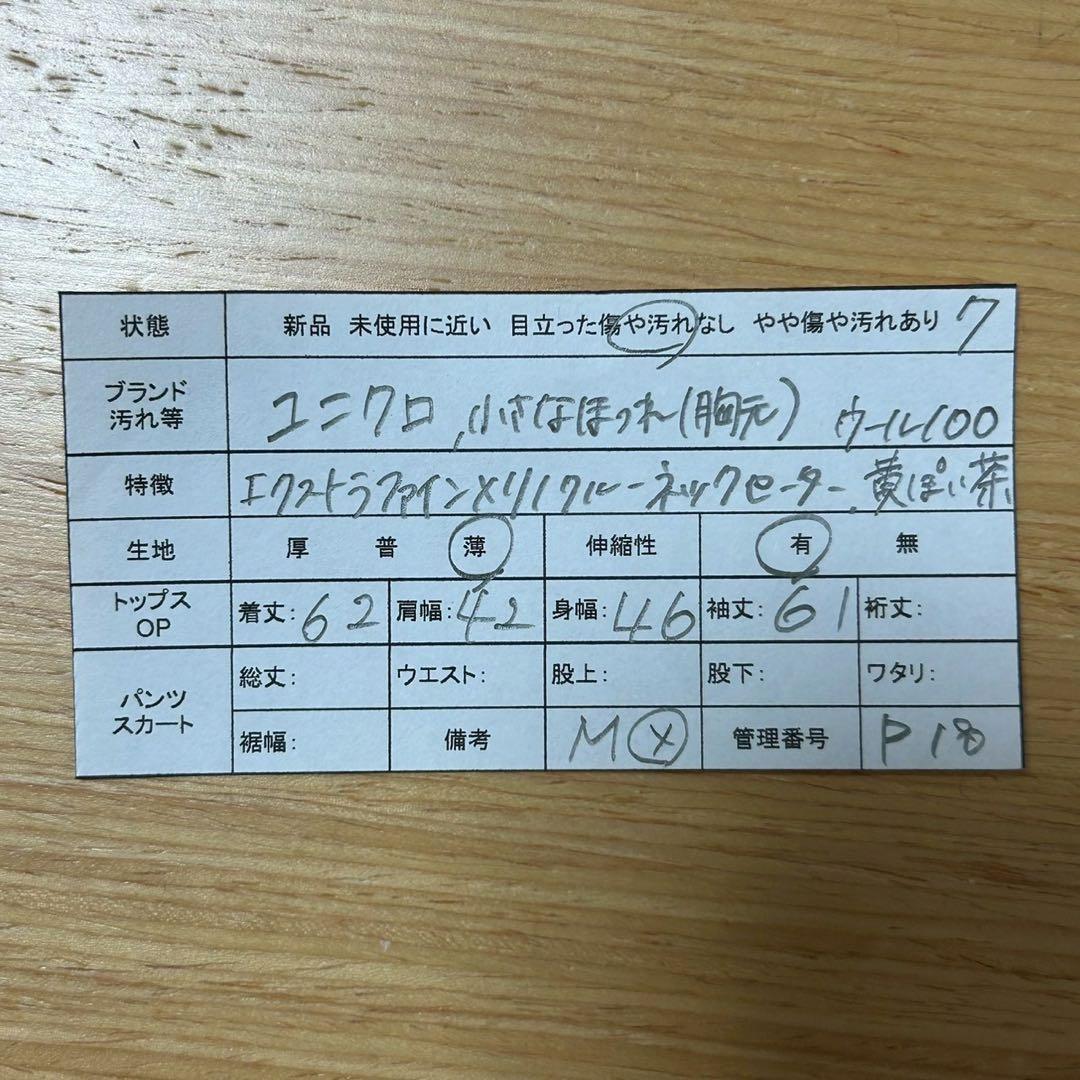 状態 新品 未使用に近い 目立った傷や汚れなし やや傷や汚れあり 7
ブランド 汚れ等 ユニクロ、小さなほつれ(胸元) ウール100
特徴 エクストラファインメリノクルーネックセーター、黄ぽい茶
生地 厚 普 薄 伸縮性 有 無
トップス OP 着丈:62 肩幅:42 身幅:46 袖丈:61 裄丈:
パンツ スカート 総丈: ウエスト: 股上: 股下: ワタリ:
裾幅: 備考 M 管理番号 P18